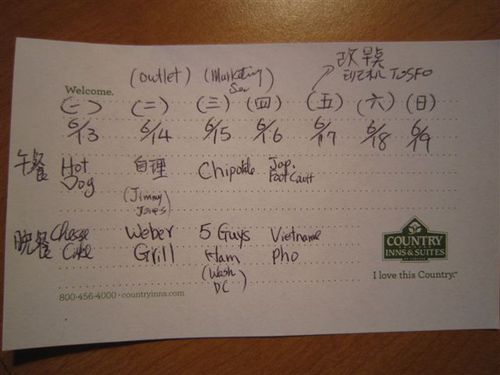 (outlet) (Marketing 改早
班机 TO SFO
Welcome.
(一) (二) (三) (四) (五) (六) (日)
6/13 6/14 6/15 6/16 6/17 6/18 6/19
午餐 Hot Dog 自理 (Jimmy Jone's) Chipotle Jap. Food Court
晚餐 Cheese Cake Weber Grill 5 Guys Ham (Wash DC) Vietname Pho
COUNTRY
INNS & SUITES
I love this Country.
800-456-4000 · countryinns.com